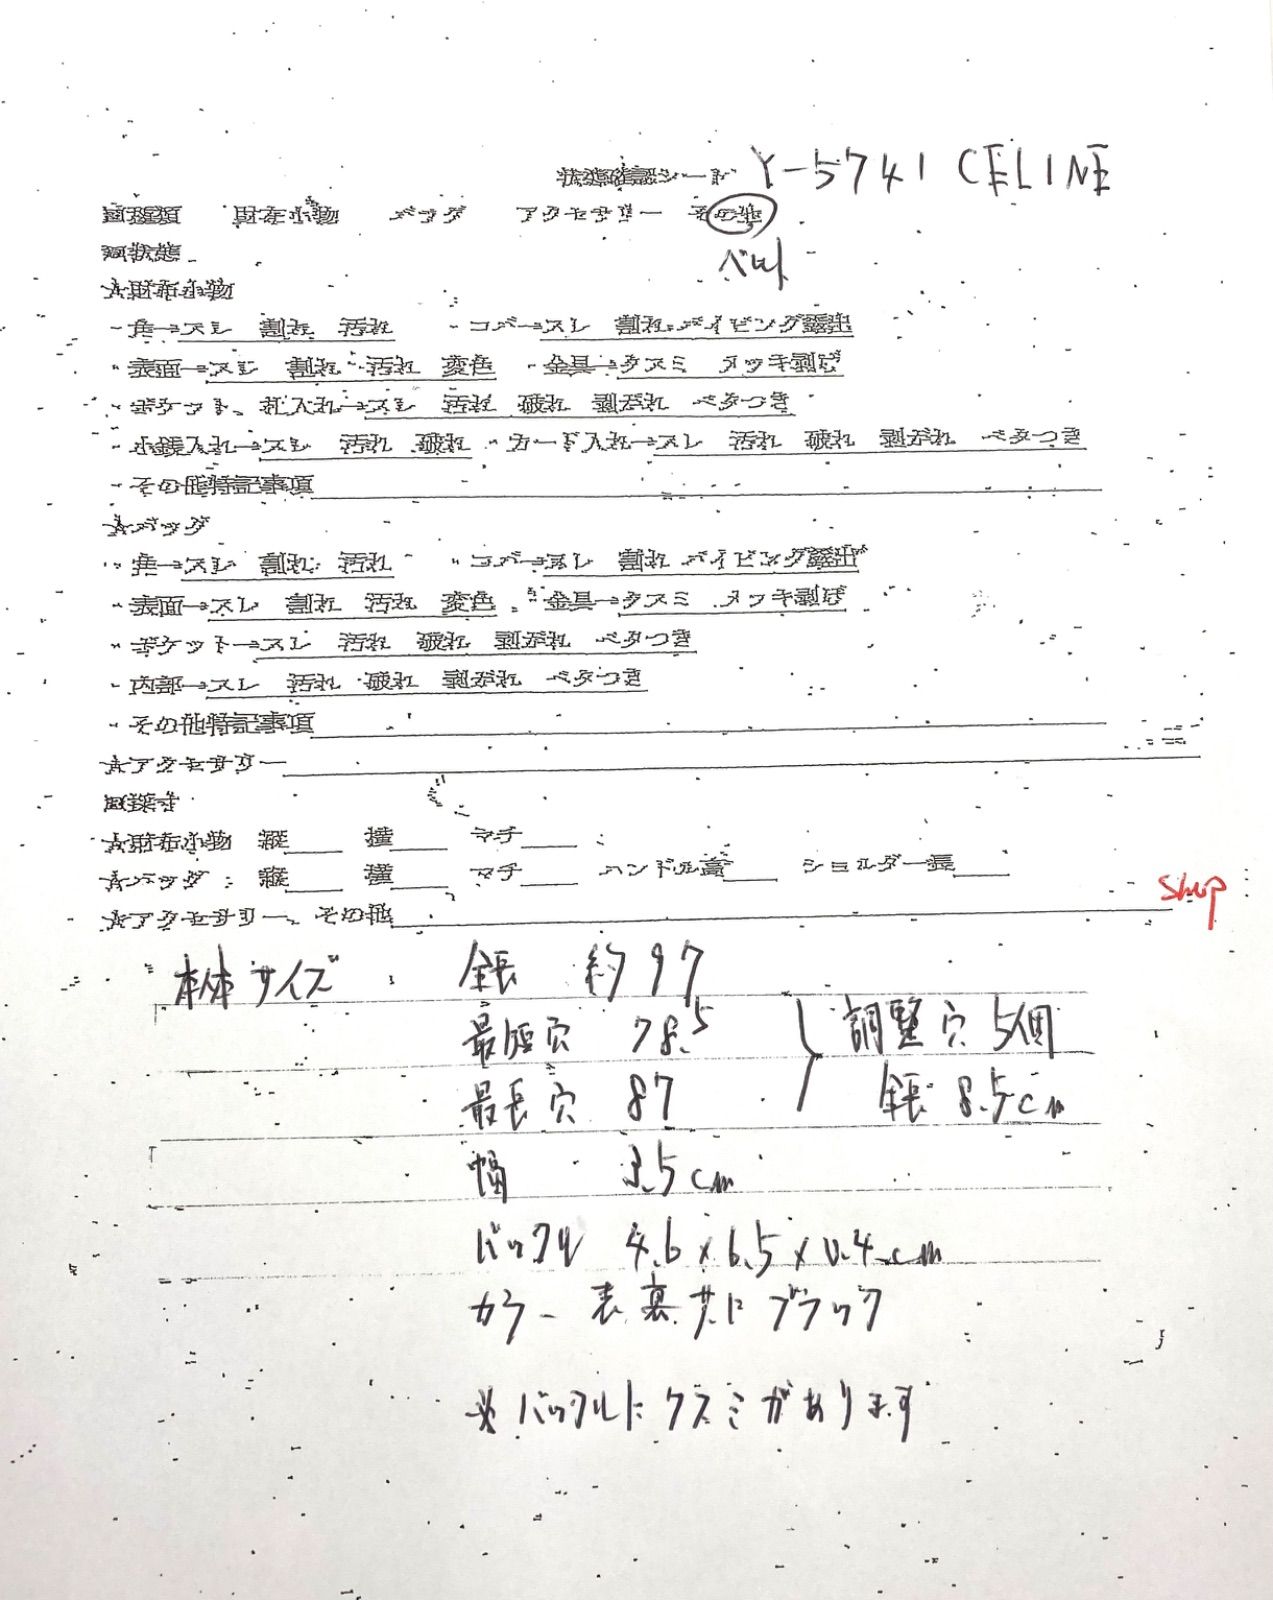 状態確認シート Y-5741 CELINE
□種類 財布小物 バッグ アクセサリー その他
ベルト
□状態
☆財布小物
・角→スレ 割れ 汚れ ・コバ→スレ 割れ パイピング露出
・表面→スレ 割れ 汚れ 変色 ・金具→クスミ メッキ剥げ
・ポケット、札入れ→スレ 汚れ 破れ 剥がれ ベタつき
・小銭入れ→スレ 汚れ 破れ ・カード入れ→スレ 汚れ 破れ 剥がれ ベタつき
・その他特記事項
☆バッグ
・角→スレ 割れ 汚れ ・コバ→スレ 割れ パイピング露出
・表面→スレ 割れ 汚れ 変色 ・金具→クスミ メッキ剥げ
・ポケット→スレ 汚れ 破れ 剥がれ ベタつき
・内部→スレ 汚れ 破れ 剥がれ ベタつき
・その他特記事項
☆アクセサリー
□採寸
☆財布小物 縦 横 マチ
☆バッグ: 縦 横 マチ ハンドル高 ショルダー長
☆アクセサリー、その他
shop
本体サイズ 全長 約97
最短穴 78.5 調整穴 5個
最長穴 87 全長 8.5cm
幅 3.5cm
バックル 4.6×6.5×0.4cm
カラー 表裏共に ブラック
※バックルに クスミがあります